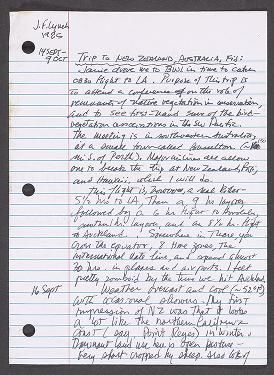 J. F. Lynch
1985
14 SEPT-
9 OCT
TRIP TO NEW ZEALAND, AUSTRALIA, FIJI:
Janie drove me to BWI in time to catch
0830 flight to LA. Purpose of this trip is
to attend a conference on the role of
remnants of native vegetation in conservation,
and to see first-hand some of the bird-
vegetation associations in the SW Pacific.
The meeting is in southwestern Australia,
at a small town called Busselton (~
mi S. of Perth). Major airlines are allow
one to break the trip at New Zealand, Fiji,
and Hawaii, which I will do.
This flight is a
5½ hrs to LA, Then a 9 hr layover
followed by a 6 hr flight to Honolulu,
another hr layover, and an 8½ hr flight
to Auckland. Somewhere in there you
cross the equator, time zones, the
international date line, and spend almost
hrs. in planes and airports. I felt
pretty zombied by the time we hit Auckland.
16 Sept
Weather overcast and cool (~52°F)
with occasional showers. My first
impression of NZ was that it looks
a lot like the northern California
coast (say Point Reyes) in winter.
Dominant land use here is open pasture -
very short cropped by sheep.